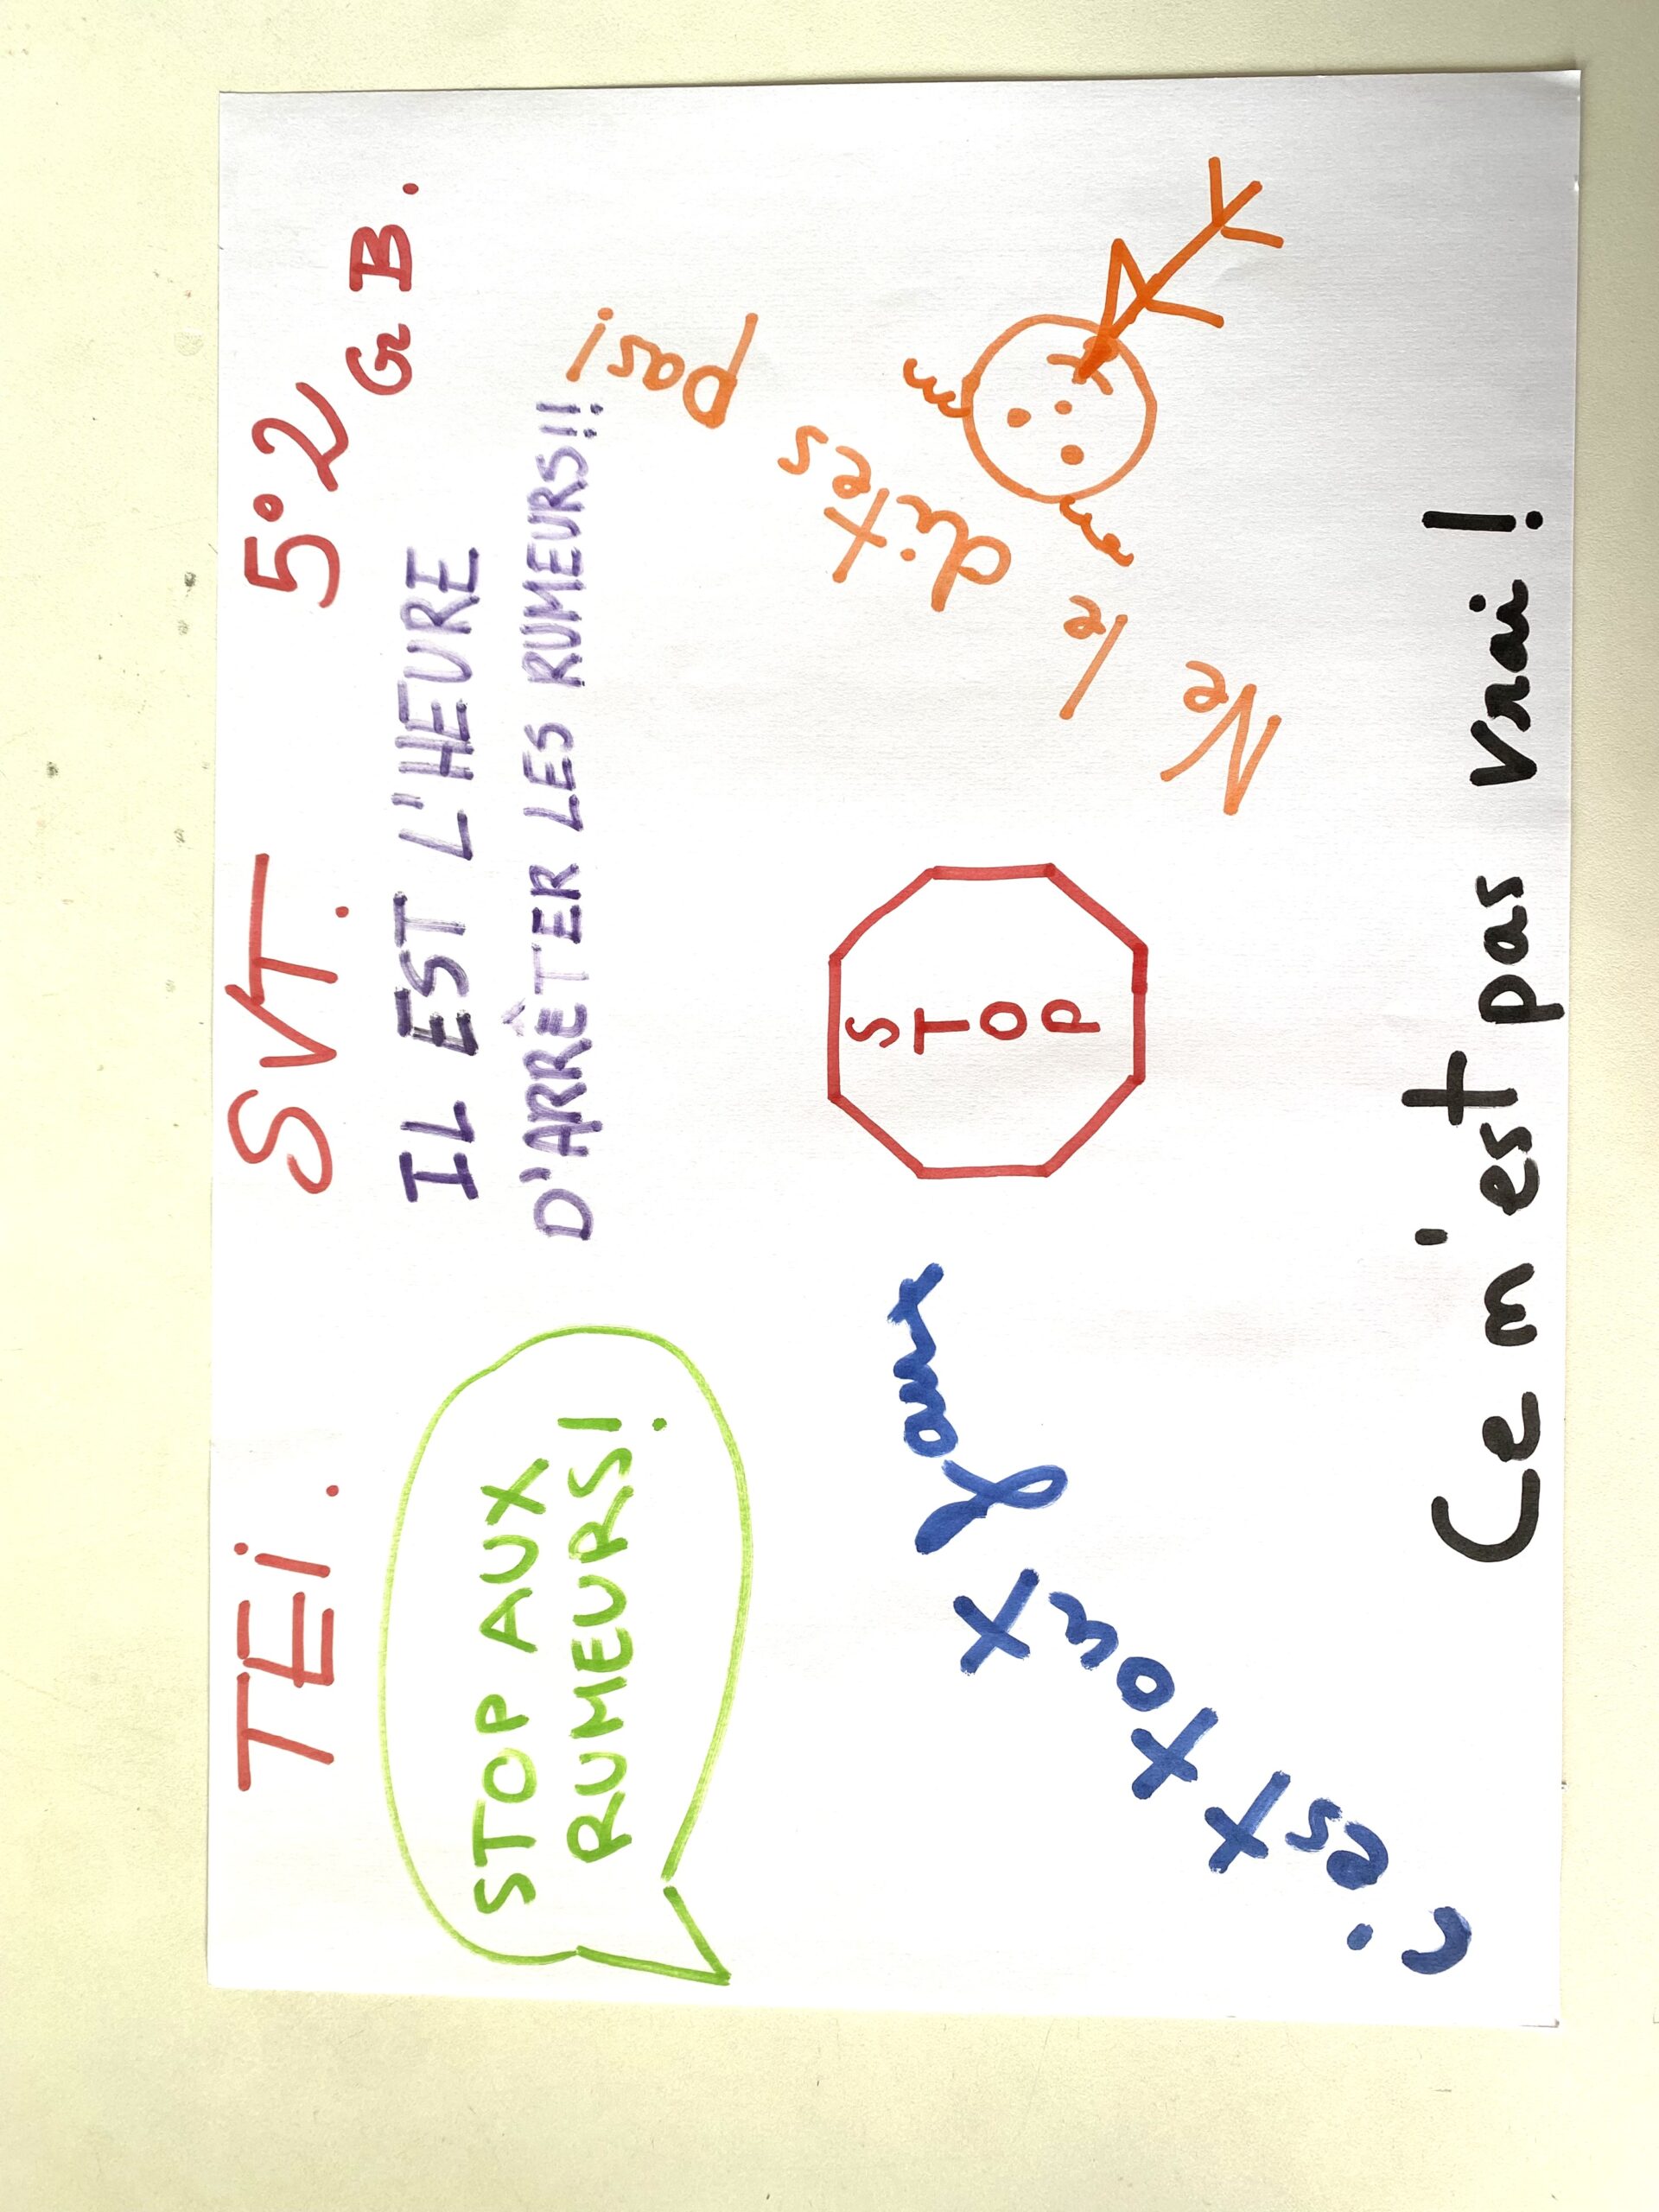 TEi. SVT. 5°2 GB.
STOP AUX
RUMEURS!
IL EST L'HEURE
D'ARRÊTER LES RUMEURS!!
Ne le dites pas!
STOP
c'est tout faux
Ce n'est pas vrai!